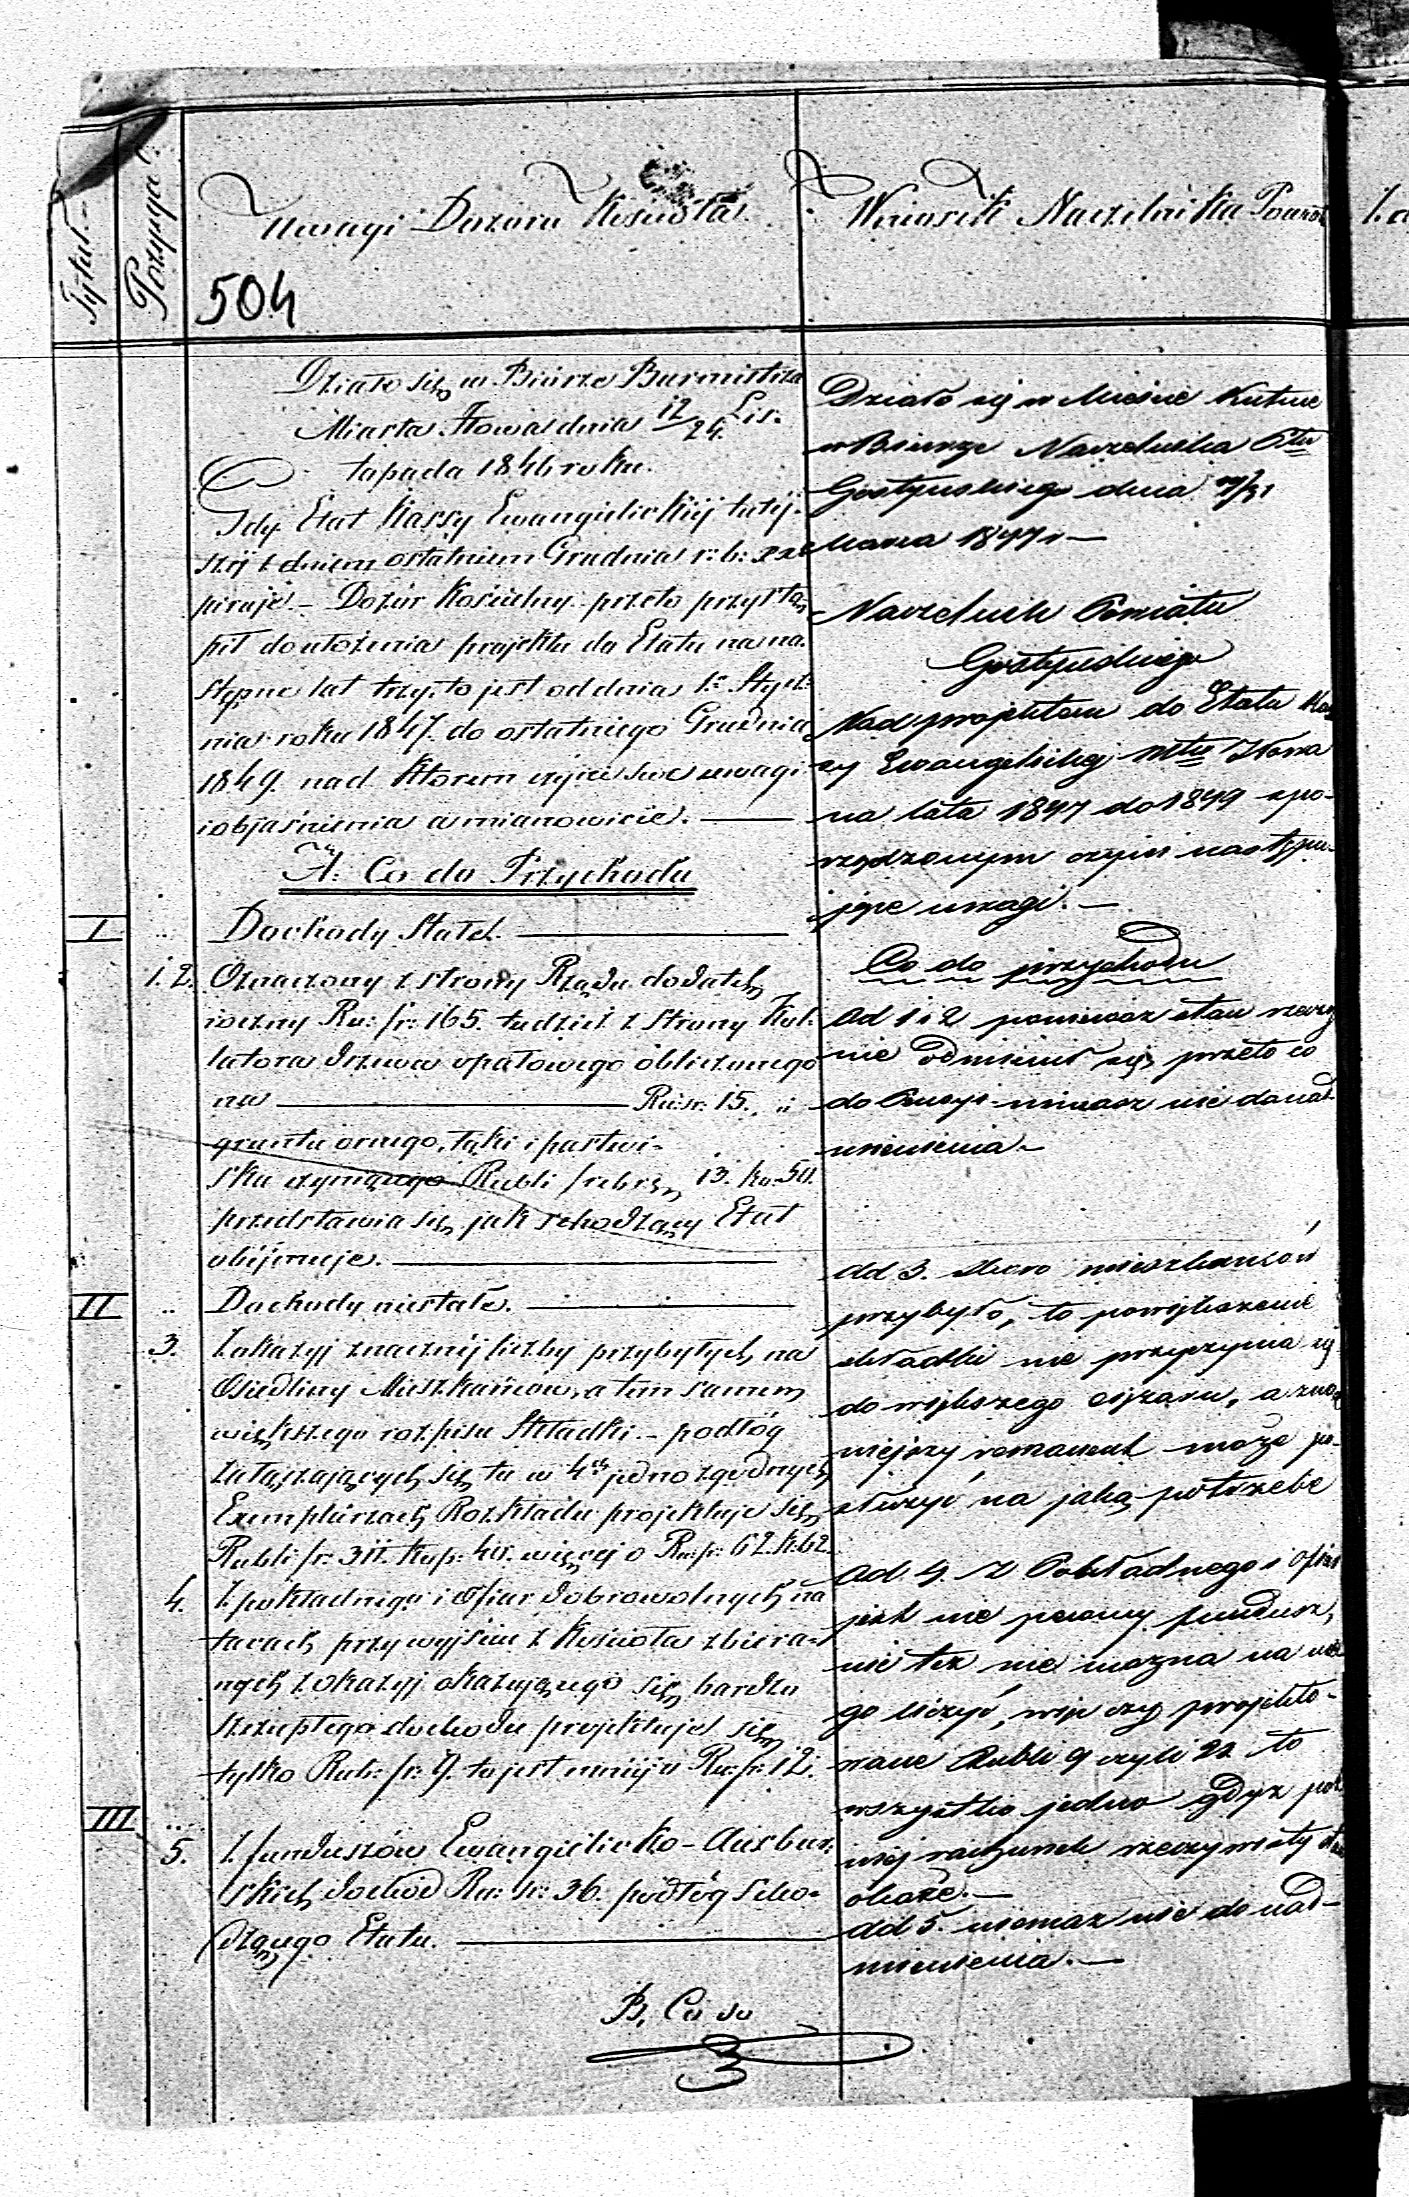 Tytuł.
Pozycya.
Uwagi Dozoru Kościoła.
Wniosek Naczelnika Powiat
504
Działo się w Biórze Burmistrza
Miasta Iłowa dnia 12/24 Lis:
topada 1846 roku.
Gdy Etat Kassy Ewangielickiéj tutéj-
széj z dniem ostatnim Grudnia r: b: exe
piruje – Dozór Kościelny przeto przystą
pił do ułożenia projektu do Etatu na na-
stępne lat trzy, to jest od dnia 1go Stycz-
nia roku 1847. do ostatniego Grudnia
1849. nad którem czyni swe uwagi
i objaśnienia a mianowicie.
A: Co do Przychodu
I
Dochody Stałe.
1. 2. Oznaczony z strony Rządu dodatek
roczny Ru: sr: 165. tudzież z strony Kol-
latora drzewa opałowego obliczonego
na Ru: sr: 15. i
gruntu ornego, łąki i pastwi-
ska czyniącego Rubli srebrem 13. ko. 50.
przedstawia się jak schodzący Etat
obéjmuje.
II
Dochody niestałe.
3. Z okazyi znacznéj liczby przybyłych na
Osiedliny Mieszkańców, a tem samem
większego rozpisu Składki – podłóg
załączających się tu w 4ch jednozgodnych
Exemplarzach Rozkładu projektuje się
Rubli sr: 311. kop: 40. więcej o Ru: sr: 62. k: 62.
4. Z pokładnego i ofiar dobrowolnych na
tacach przy wyjściu z Kościoła zbiera-
nych z okazyi okazującego się bardzo
szczupłego dochodu projektuje się
tylko Rub: sr: 9. to jest mniéj o Ru: sr: 12.
III
5. Z funduszów Ewangielicko-Auxbur-
skich dochód Ru: sr: 36. podłóg scho-
dzącego Etatu.
B, Co do
Działo się w Mieście Kutnie
w Biurze Naczelnika Ptu
Gostyńskiego dnia /31
Marca 1847 r –
Naczelnik Powiatu
Gostyńskiego
Nad projektem do Etatu Kas
sy Ewangelickiej Mta Iłowa
na lata 1847 do 1849 spo-
rządzonym czyni następu-
jące uwagi. –
Co do przychodu
Ad 1 i 2 ponieważ stan rzeczy
nie odmienił się przeto co
do Pozycyi niemasz nic do nad-
mienienia –
Ad 3. Skoro mieszkańców
przybyło, to powiększenie
składki nie przyczynia się
do większego ciężaru, a
może po-
służyć na jaką potrzebę
Ad 4. Z Pokładnego i ofiar
jest nie pewny fundusz,
nic też nie można na nie
go liczyć, więc czy projekto-
wane Rubli 9 czyli 21 to
wszystko jedno gdyż
rachunek rzeczywisty
okaże. –
Ad 5. niemasz nic do nad-
mienienia. –